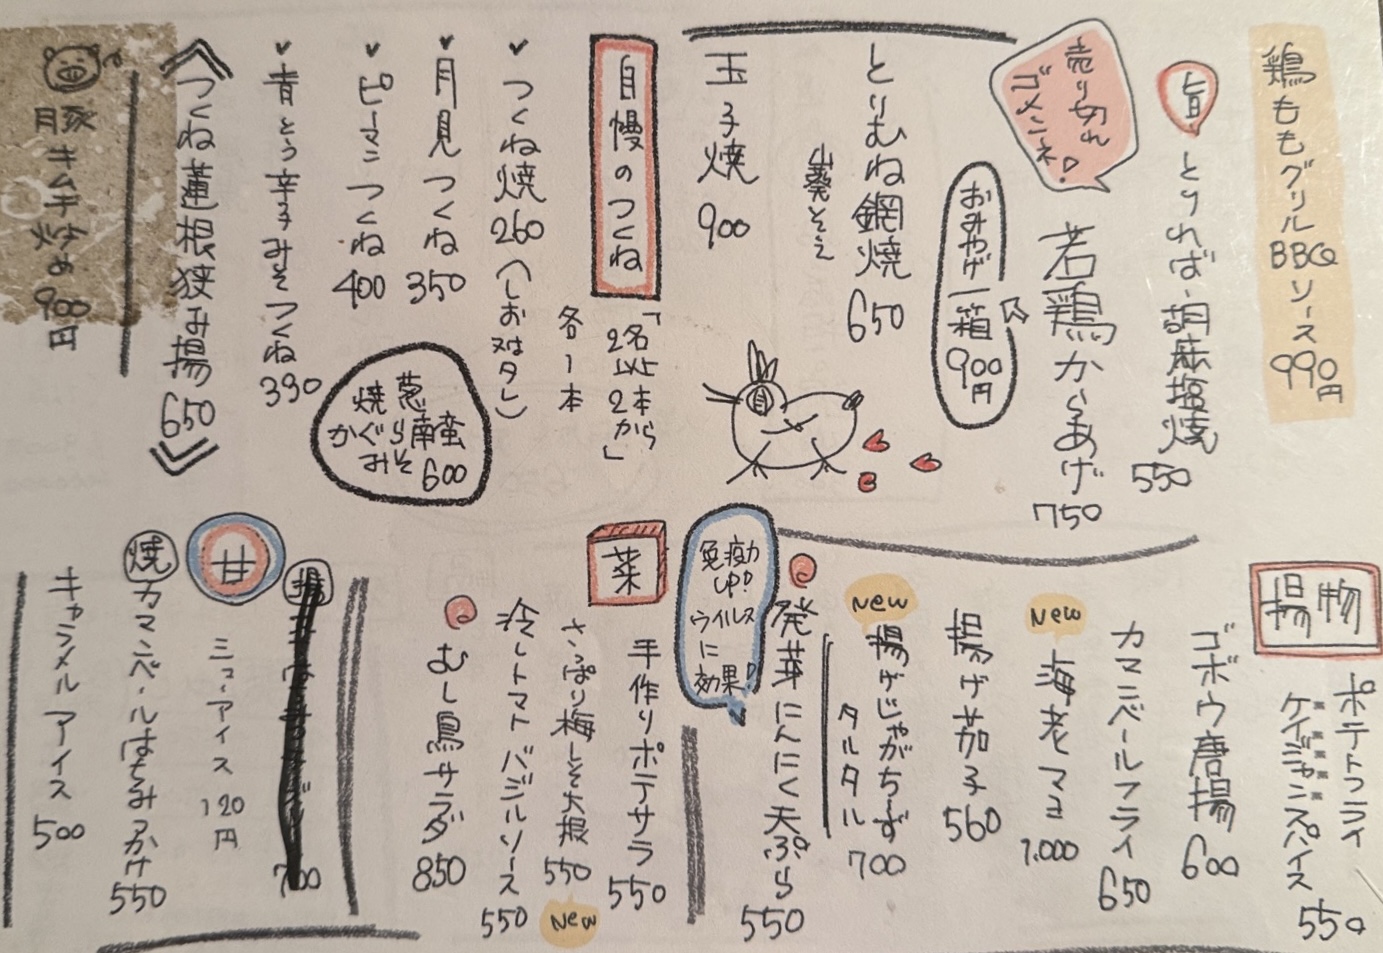 鶏ももグリルBBQソース 990円
旨 とりねば、胡麻塩焼 550
売り切れゴメンネ!
若鶏からあげ 750
おみやげ一箱 900円
とりむね網焼 650
山葵そえ
玉子焼 900
自慢のつくね
「2名以上2本から」
各1本
つくね焼 260 (しお又はタレ)
月見つくね 350
ピーマンつくね 400
青とう辛子みそつくね 390
葱ぐら南蛮
焼
かぐらみそ 600
つくね蓮根狭み揚 650
豚キムチ炒め 900円
揚物
ポテトフライ
ケイジャンスパイス 550
ゴボウ唐揚 600
カマンベールフライ 650
New 海老マヨ 1.000
揚げ茄子 560
New 揚げじゃがちーず 700
タルタル
発芽にんにく天ぷら 550
免疫力UP!!
ウイルスに
効果!
菜
手作りポテサラ 550
さっぱり梅しそ大根 550 New
冷しトマトバジルソース 550
むし鳥サラダ 850
甘
700
ミニ・アイス 120円
焼 カマンベールはちみつかけ 550
キャラメルアイス 500